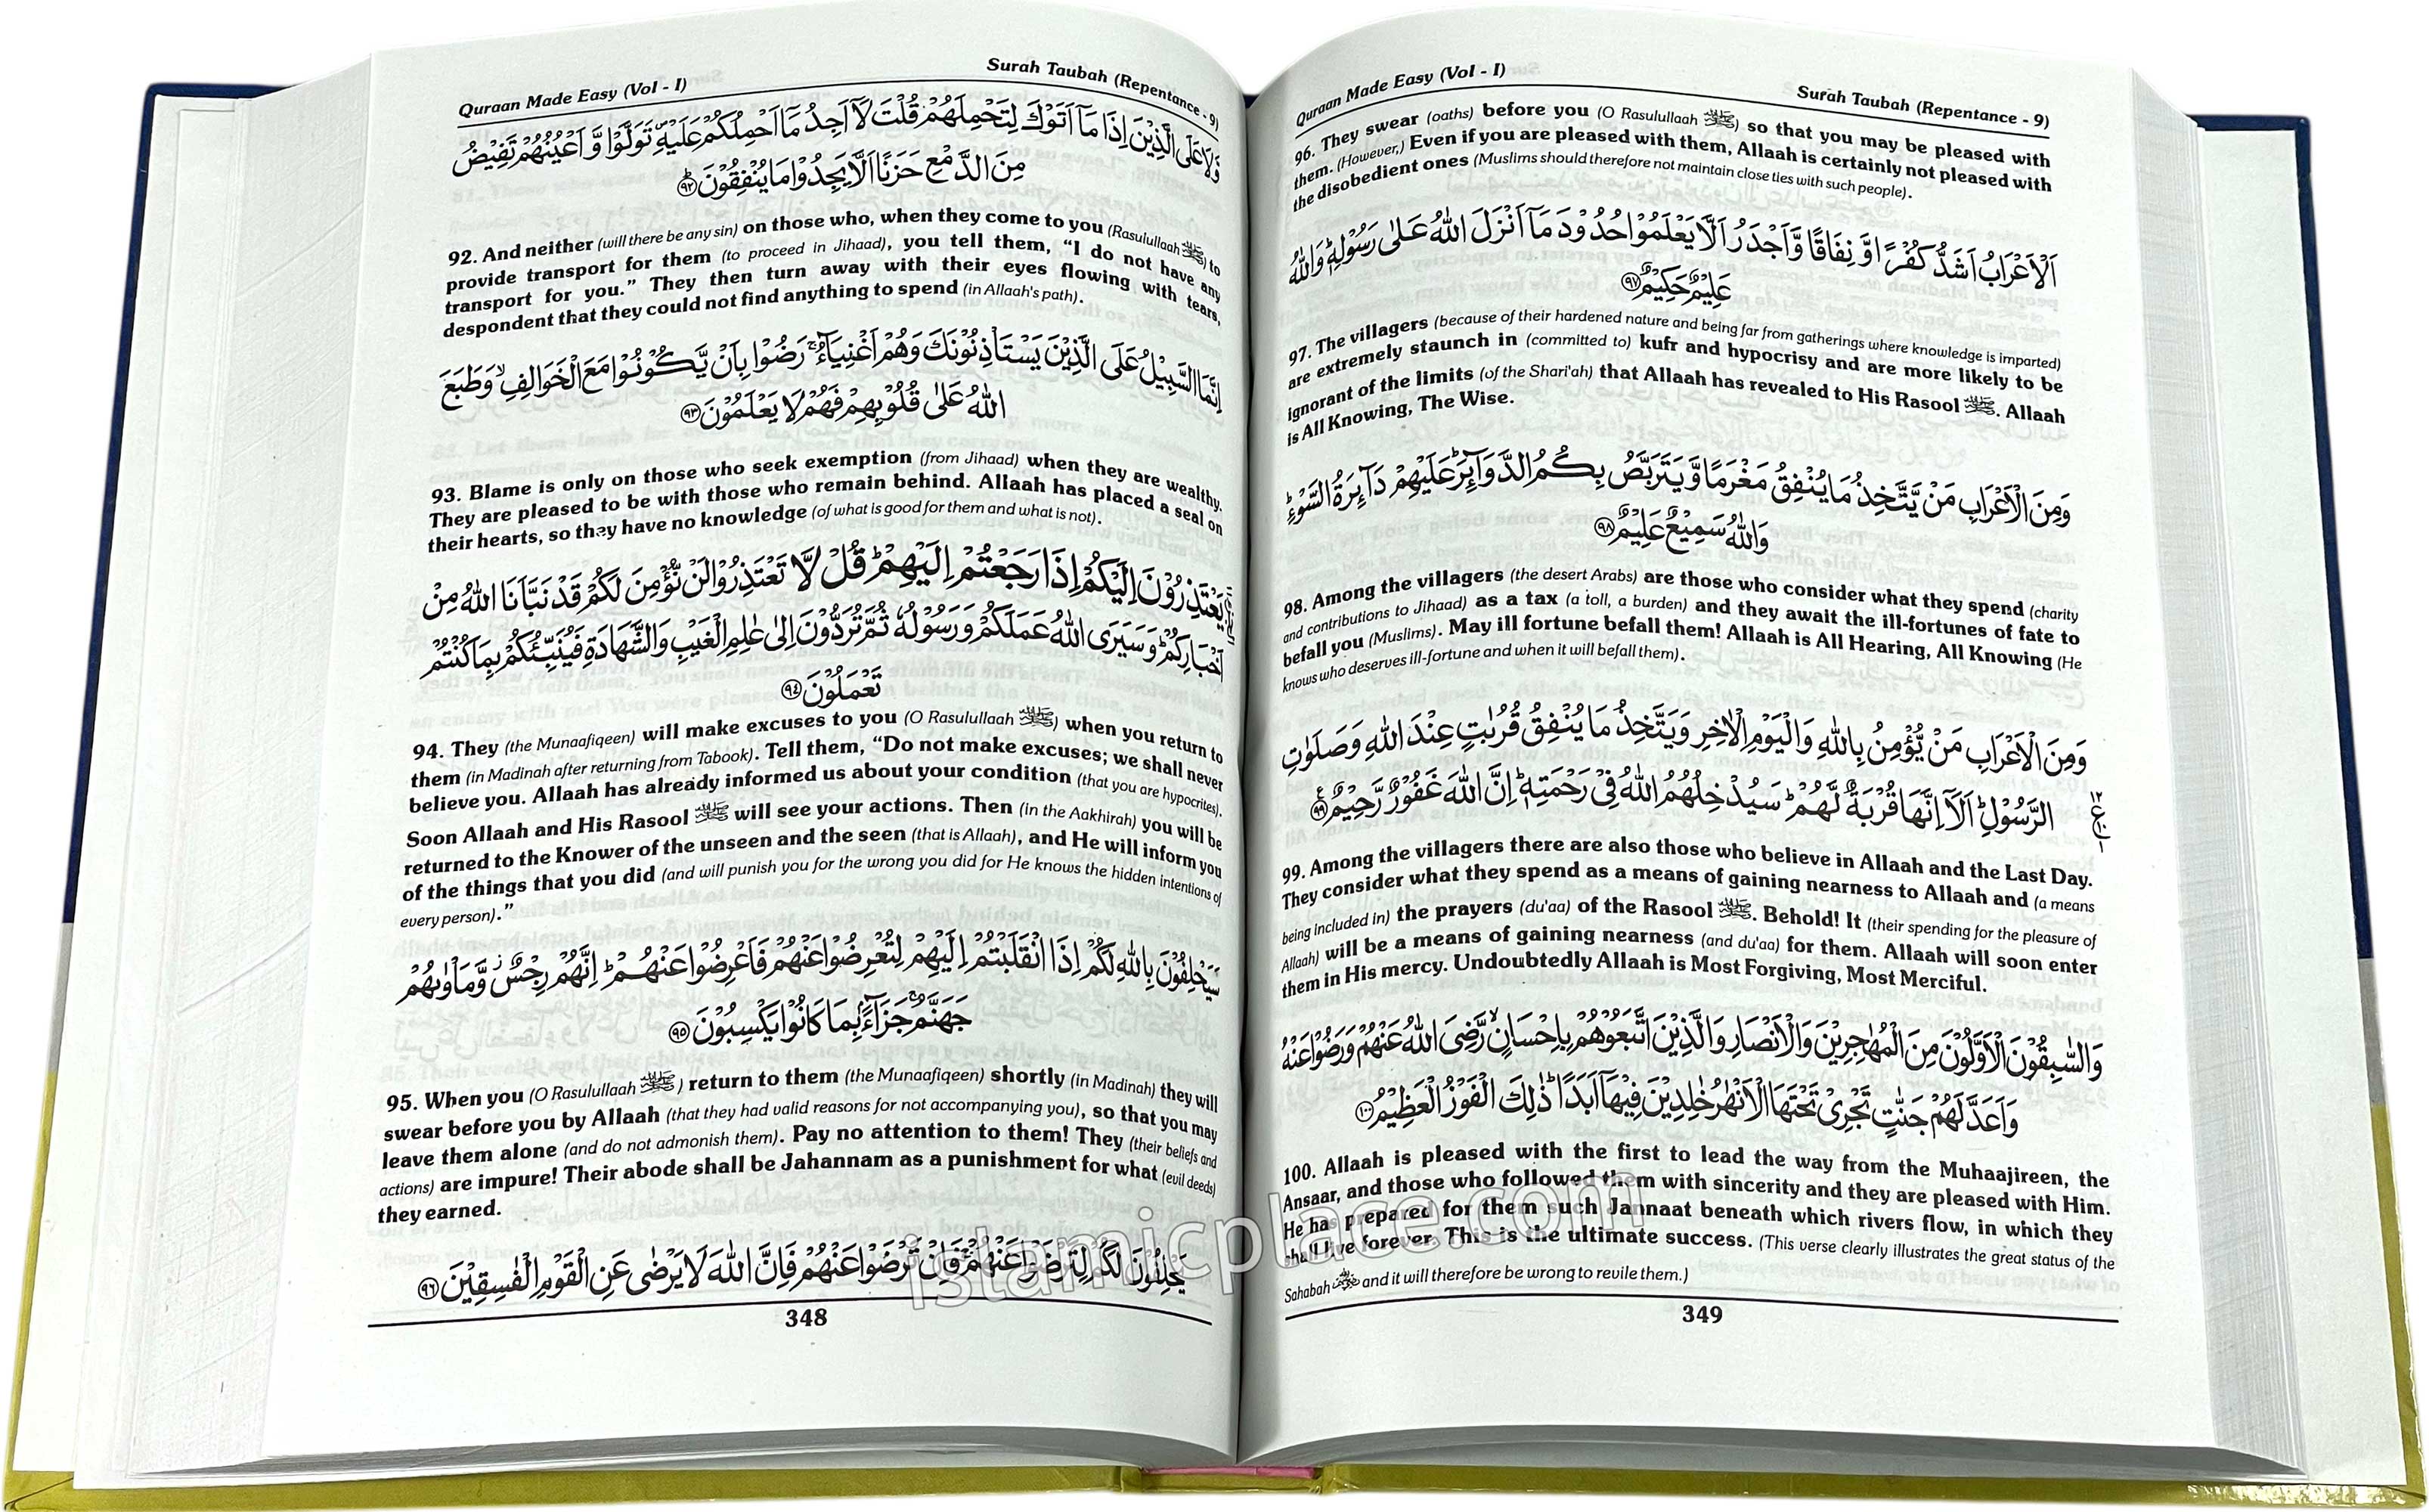 Quraan Made Easy (Vol - I)
Surah Taubah (Repentance - 9)
وَّلَا عَلَى الَّذِيْنَ اِذَا مَاۤ اَتَوْكَ لِتَحْمِلَهُمْ قُلْتَ لَاۤ اَجِدُ مَاۤ اَحْمِلُكُمْ عَلَيْهِ ۪ تَوَلَّوْا وَّ اَعْيُنُهُمْ تَفِيْضُ
مِنَ الدَّمْعِ حَزَنًا اَلَّا يَجِدُوْا مَا يُنْفِقُوْنَ ؕ ﴿۹۲﴾
92. And neither (will there be any sin) on those who, when they come to you (Rasulullaah ﷺ) to
provide transport for them (to proceed in Jihaad), you tell them, “I do not have any
transport for you.” They then turn away with their eyes flowing with tears,
despondent that they could not find anything to spend (in Allaah's path).
اِنَّمَا السَّبِيْلُ عَلَى الَّذِيْنَ يَسْتَاْذِنُوْنَكَ وَهُمْ اَغْنِيَآءُ ۚ رَضُوْا بِاَنْ يَّكُوْنُوْا مَعَ الْخَوَالِفِ ۙ وَطَبَعَ
اللّٰهُ عَلٰى قُلُوْبِهِمْ فَهُمْ لَا يَعْلَمُوْنَ ﴿۹۳﴾
93. Blame is only on those who seek exemption (from Jihaad) when they are wealthy.
They are pleased to be with those who remain behind. Allaah has placed a seal on
their hearts, so they have no knowledge (of what is good for them and what is not).
يَعْتَذِرُوْنَ اِلَيْكُمْ اِذَا رَجَعْتُمْ اِلَيْهِمْ ؕ قُلْ لَّا تَعْتَذِرُوْا لَنْ نُّؤْمِنَ لَكُمْ قَدْ نَبَّاَنَا اللّٰهُ مِنْ
اَخْبَارِكُمْ ؕ وَسَيَرَى اللّٰهُ عَمَلَكُمْ وَرَسُوْلُهٗ ثُمَّ تُرَدُّوْنَ اِلٰى عٰلِمِ الْغَيْبِ وَالشَّهَادَةِ فَيُنَبِّئُكُمْ بِمَا كُنْتُمْ
تَعْمَلُوْنَ ﴿۹٤﴾
94. They (the Munaafiqeen) will make excuses to you (O Rasulullaah ﷺ) when you return to
them (in Madinah after returning from Tabook). Tell them, “Do not make excuses; we shall never
believe you. Allaah has already informed us about your condition (that you are hypocrites).
Soon Allaah and His Rasool ﷺ will see your actions. Then (in the Aakhirah) you will be
returned to the Knower of the unseen and the seen (that is Allaah), and He will inform you
of the things that you did (and will punish you for the wrong you did for He knows the hidden intentions of
every person).”
سَيَحْلِفُوْنَ بِاللّٰهِ لَكُمْ اِذَا انْقَلَبْتُمْ اِلَيْهِمْ لِتُعْرِضُوْا عَنْهُمْ فَاَعْرِضُوْا عَنْهُمْ ؕ اِنَّهُمْ رِجْسٌ ؗ وَّمَاْوٰىهُمْ
جَهَنَّمُ ۚ جَزَآءًۢ بِمَا كَانُوْا يَكْسِبُوْنَ ﴿۹۵﴾
95. When you (O Rasulullaah ﷺ) return to them (the Munaafiqeen) shortly (in Madinah) they will
swear before you by Allaah (that they had valid reasons for not accompanying you), so that you may
leave them alone (and do not admonish them). Pay no attention to them! They (their beliefs and
actions) are impure! Their abode shall be Jahannam as a punishment for what (evil deeds)
they earned.
يَحْلِفُوْنَ لَكُمْ لِتَرْضَوْا عَنْهُمْ ۚ فَاِنْ تَرْضَوْا عَنْهُمْ فَاِنَّ اللّٰهَ لَا يَرْضٰى عَنِ الْقَوْمِ الْفٰسِقِيْنَ ﴿۹٦﴾
348
Quraan Made Easy (Vol - I)
Surah Taubah (Repentance - 9)
96. They swear (oaths) before you (O Rasulullaah ﷺ) so that you may be pleased with
them. (However,) Even if you are pleased with them, Allaah is certainly not pleased with
the disobedient ones (Muslims should therefore not maintain close ties with such people).
اَلْاَعْرَابُ اَشَدُّ كُفْرًا وَّ نِفَاقًا وَّ اَجْدَرُ اَلَّا يَعْلَمُوْا حُدُوْدَ مَاۤ اَنْزَلَ اللّٰهُ عَلٰى رَسُوْلِهٖ ؕ وَاللّٰهُ
عَلِيْمٌ حَكِيْمٌ ﴿۹۷﴾
97. The villagers (because of their hardened nature and being far from gatherings where knowledge is imparted)
are extremely staunch in (committed to) kufr and hypocrisy and are more likely to be
ignorant of the limits (of the Shari'ah) that Allaah has revealed to His Rasool ﷺ. Allaah
is All Knowing, The Wise.
وَمِنَ الْاَعْرَابِ مَنْ يَّتَّخِذُ مَا يُنْفِقُ مَغْرَمًا وَّ يَتَرَبَّصُ بِكُمُ الدَّوَآئِرَ ؕ عَلَيْهِمْ دَآئِرَةُ السَّوْءِ ؕ
وَاللّٰهُ سَمِيْعٌ عَلِيْمٌ ﴿۹۸﴾
98. Among the villagers (the desert Arabs) are those who consider what they spend (charity
and contributions to Jihaad) as a tax (a toll, a burden) and they await the ill-fortunes of fate to
befall you (Muslims). May ill fortune befall them! Allaah is All Hearing, All Knowing (He
knows who deserves ill-fortune and when it will befall them).
وَمِنَ الْاَعْرَابِ مَنْ يُّؤْمِنُ بِاللّٰهِ وَالْيَوْمِ الْاٰخِرِ وَيَتَّخِذُ مَا يُنْفِقُ قُرُبٰتٍ عِنْدَ اللّٰهِ وَصَلَوٰتِ
الرَّسُوْلِ ؕ اَلَاۤ اِنَّهَا قُرْبَةٌ لَّهُمْ ؕ سَيُدْخِلُهُمُ اللّٰهُ فِيْ رَحْمَتِهٖ ؕ اِنَّ اللّٰهَ غَفُوْرٌ رَّحِيْمٌ ﴿۹۹﴾
99. Among the villagers there are also those who believe in Allaah and the Last Day.
They consider what they spend as a means of gaining nearness to Allaah and (a means
being included in) the prayers (du'aa) of the Rasool ﷺ. Behold! It (their spending for the pleasure of
Allaah) will be a means of gaining nearness (and du'aa) for them. Allaah will soon enter
them in His mercy. Undoubtedly Allaah is Most Forgiving, Most Merciful.
وَالسّٰبِقُوْنَ الْاَوَّلُوْنَ مِنَ الْمُهٰجِرِيْنَ وَالْاَنْصَارِ وَالَّذِيْنَ اتَّبَعُوْهُمْ بِاِحْسَانٍ ۙ رَّضِيَ اللّٰهُ عَنْهُمْ وَرَضُوْا عَنْهُ
وَاَعَدَّ لَهُمْ جَنّٰتٍ تَجْرِيْ تَحْتَهَا الْاَنْهٰرُ خٰلِدِيْنَ فِيْهَاۤ اَبَدًا ؕ ذٰلِكَ الْفَوْزُ الْعَظِيْمُ ﴿۱۰۰﴾
100. Allaah is pleased with the first to lead the way from the Muhaajireen, the
Ansaar, and those who followed them with sincerity and they are pleased with Him.
He has prepared for them such Jannaat beneath which rivers flow, in which they
shall live forever. This is the ultimate success. (This verse clearly illustrates the great status of the
Sahabah and it will therefore be wrong to revile them.)
349
islamicplace.com